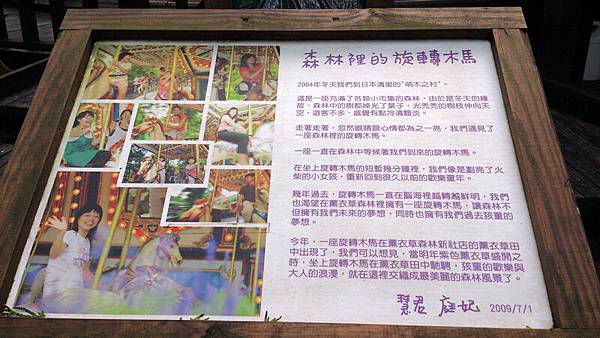 森林裡的旋轉木馬
2004年冬天我們到日本清里的"萌木之村"。
這是一座充滿了各類小市集的森林，由於是冬天的緣
故，森林中的樹都掉光了葉子，光禿禿的樹枝伸向天
空，遊客不多，感覺有點冷清黯淡。
走著走著，忽然眼睛跟心情都為之一亮，我們遇見了
一座森林裡的旋轉木馬。
一座一直在森林中等候著我們到來的旋轉木馬。
在坐上旋轉木馬的短暫幾分鐘裡，我們像是劃亮了火
柴的小女孩，重新回到很久以前的歡樂童年。
幾年過去，旋轉木馬一直在腦海裡越轉越鮮明，我們
也渴望在薰衣草森林裡擁有一座旋轉木馬，讓森林不
但擁有我們未來的夢想，同時也擁有我們過去孩童的
夢想。
今年，一座旋轉木馬在薰衣草森林新社店的薰衣草田
中出現了，我們可以想見，當明年紫色薰衣草盛開之
時，坐上旋轉木馬在薰衣草田中馳騁，孩童的歡樂與
大人的浪漫，就在這裡交織成最美麗的森林風景了。
慧君 庭妃 2009/7/1